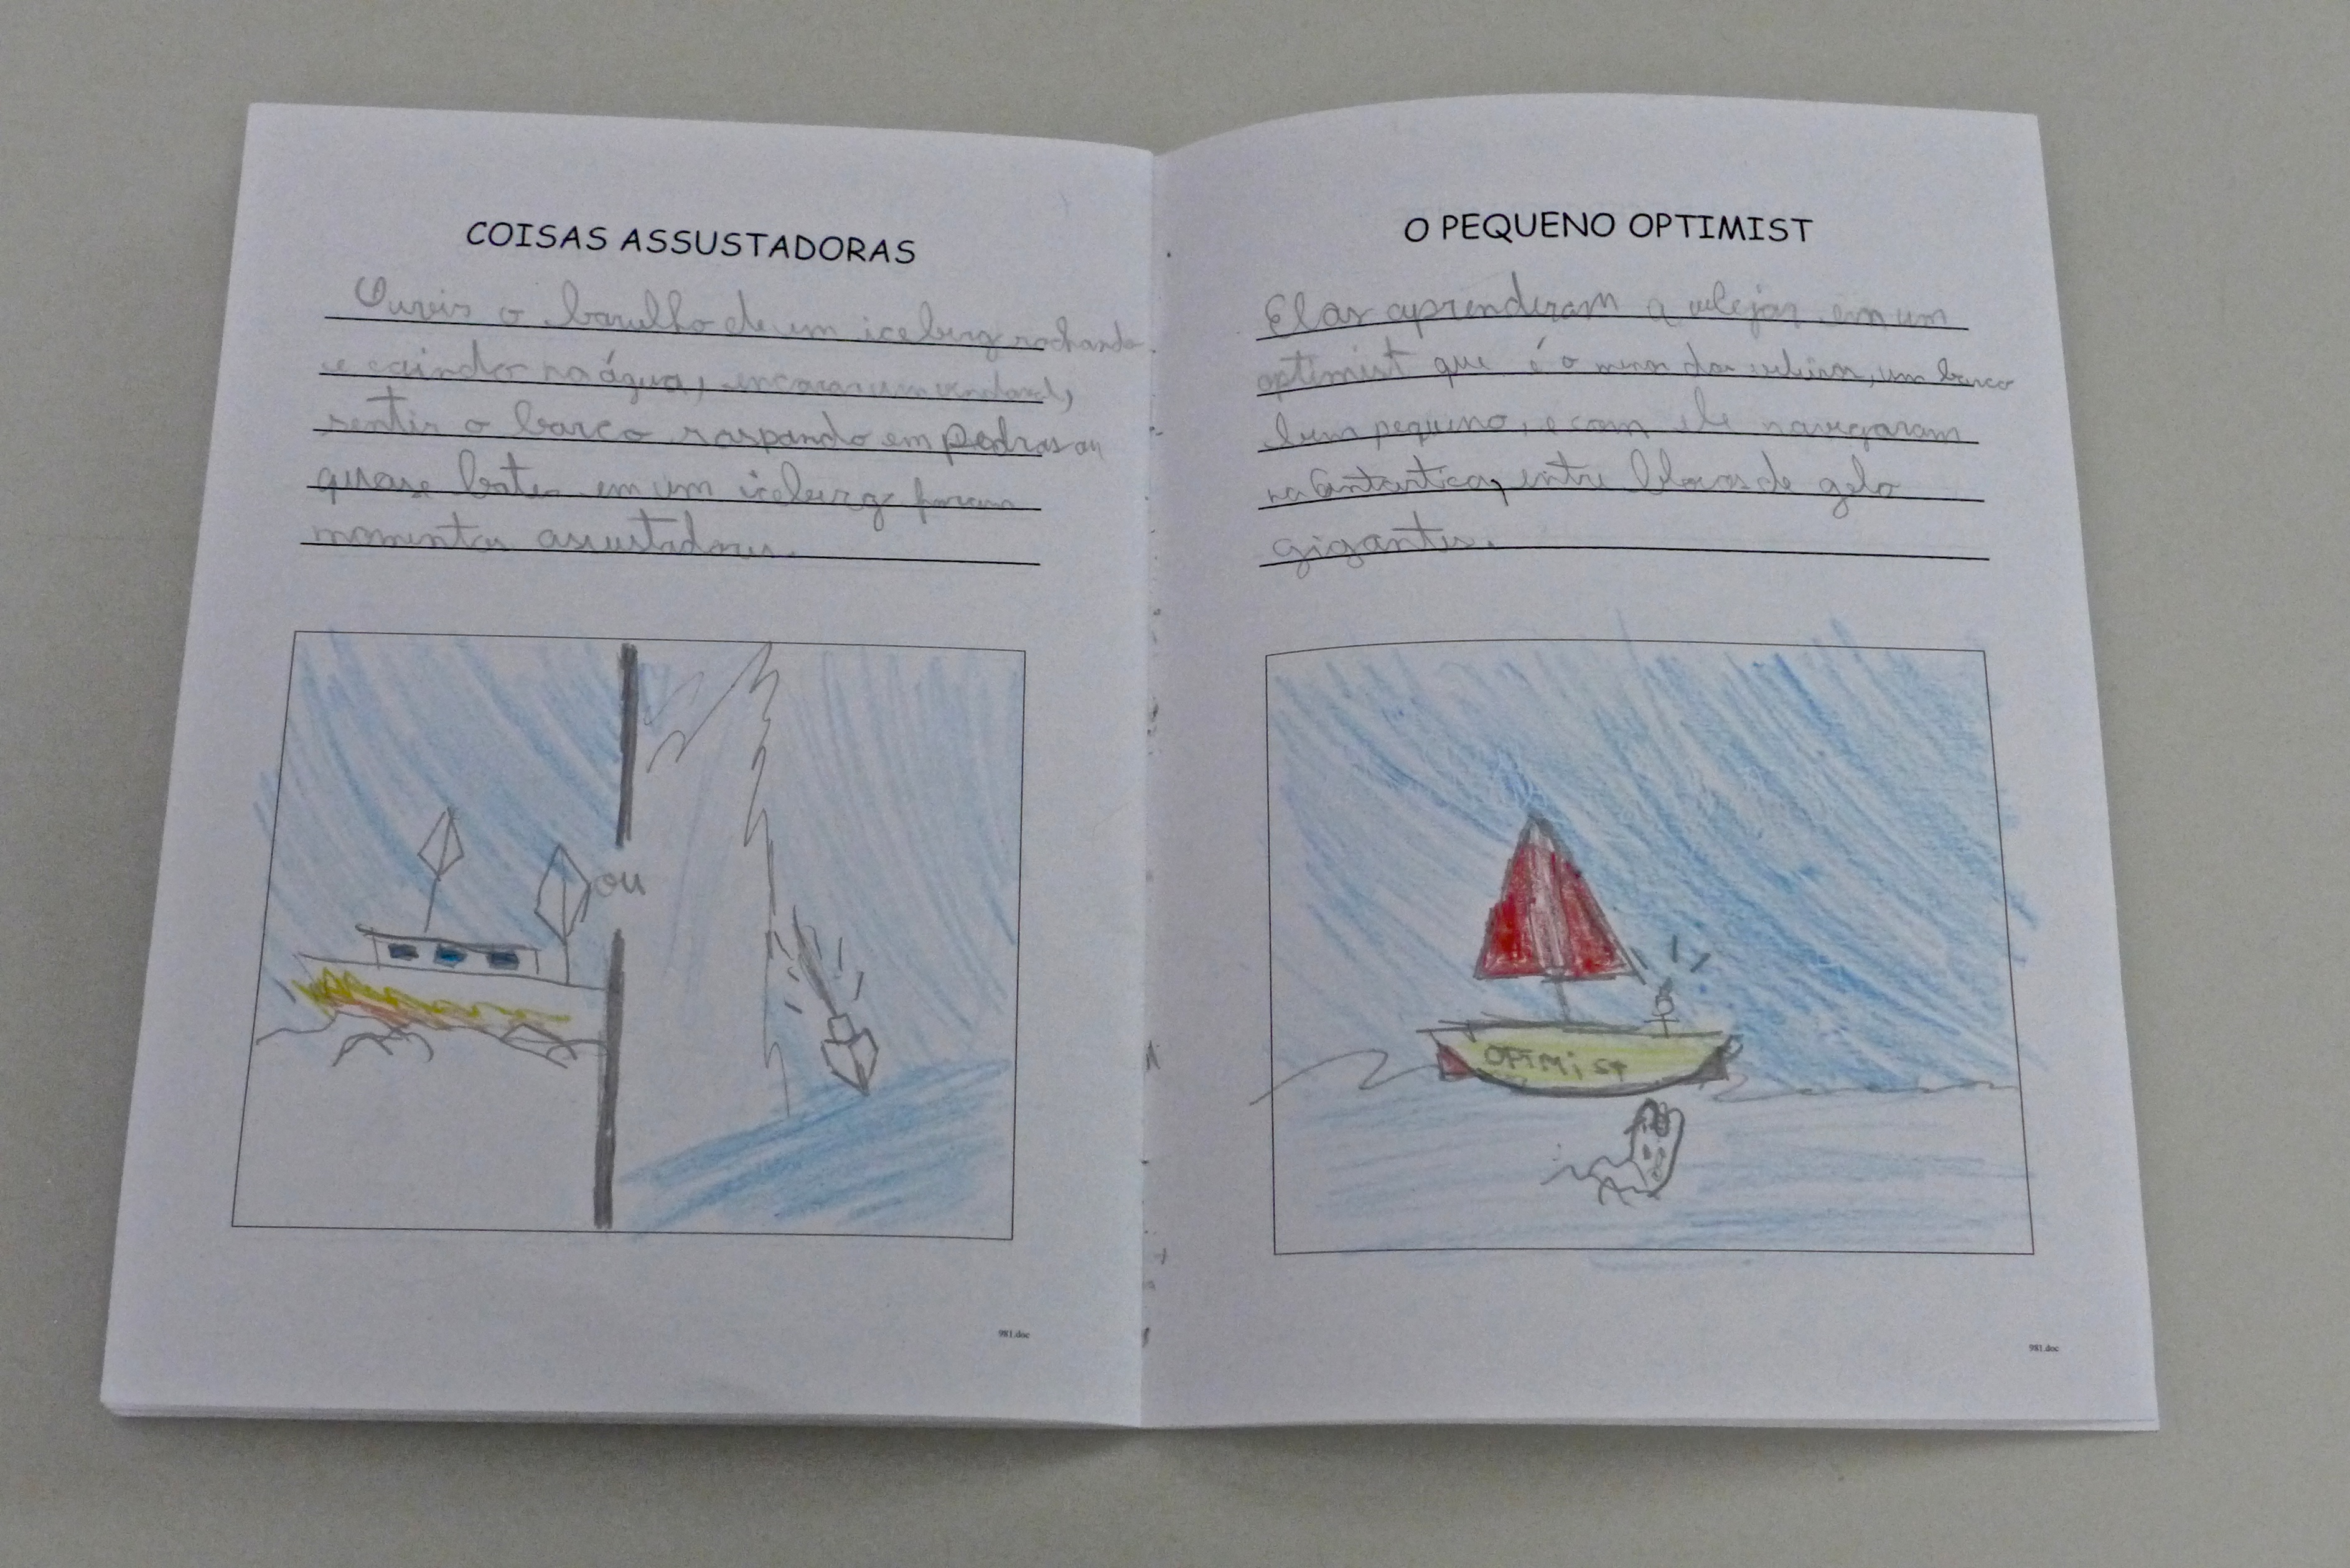 COISAS ASSUSTADORAS
Ouvir o barulho de um iceberg rachando
e caindo na água, encarar um vendaval,
sentir o barco raspando em pedras ou
quase bater em um iceberg foram
momentos assustadores.
ou
981.doc
O PEQUENO OPTIMIST
Elas aprenderam a velejar em um
optimist que é o menor dos veleiros, um barco
bem pequeno, e com ele navegaram
na Antártica, entre blocos de gelo
gigantes.
OPTIMIST
981.doc